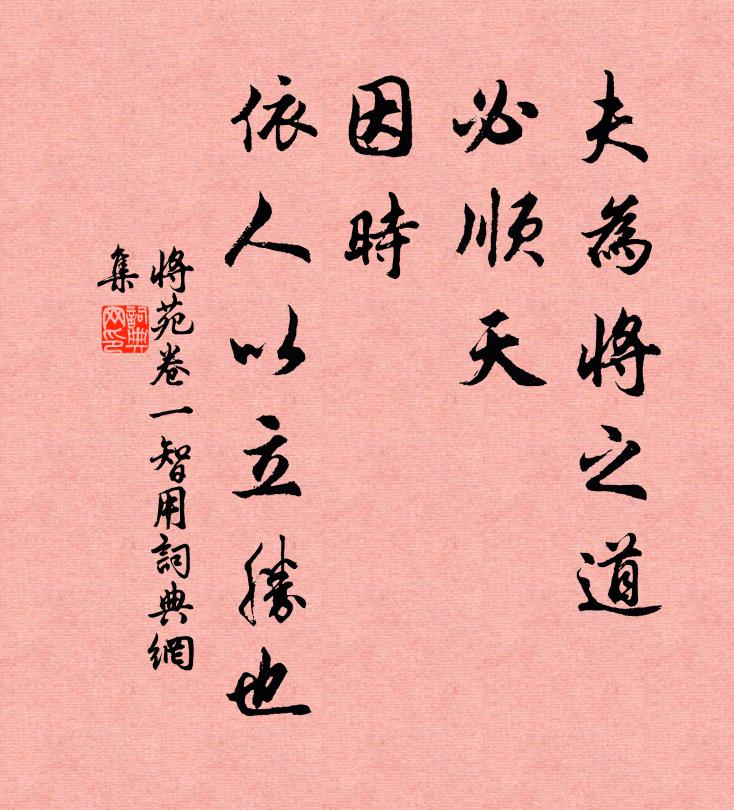 夫為將之道
必順天
因時
依人以立勝也
將苑卷一智用詞典網
集
詞典
网印